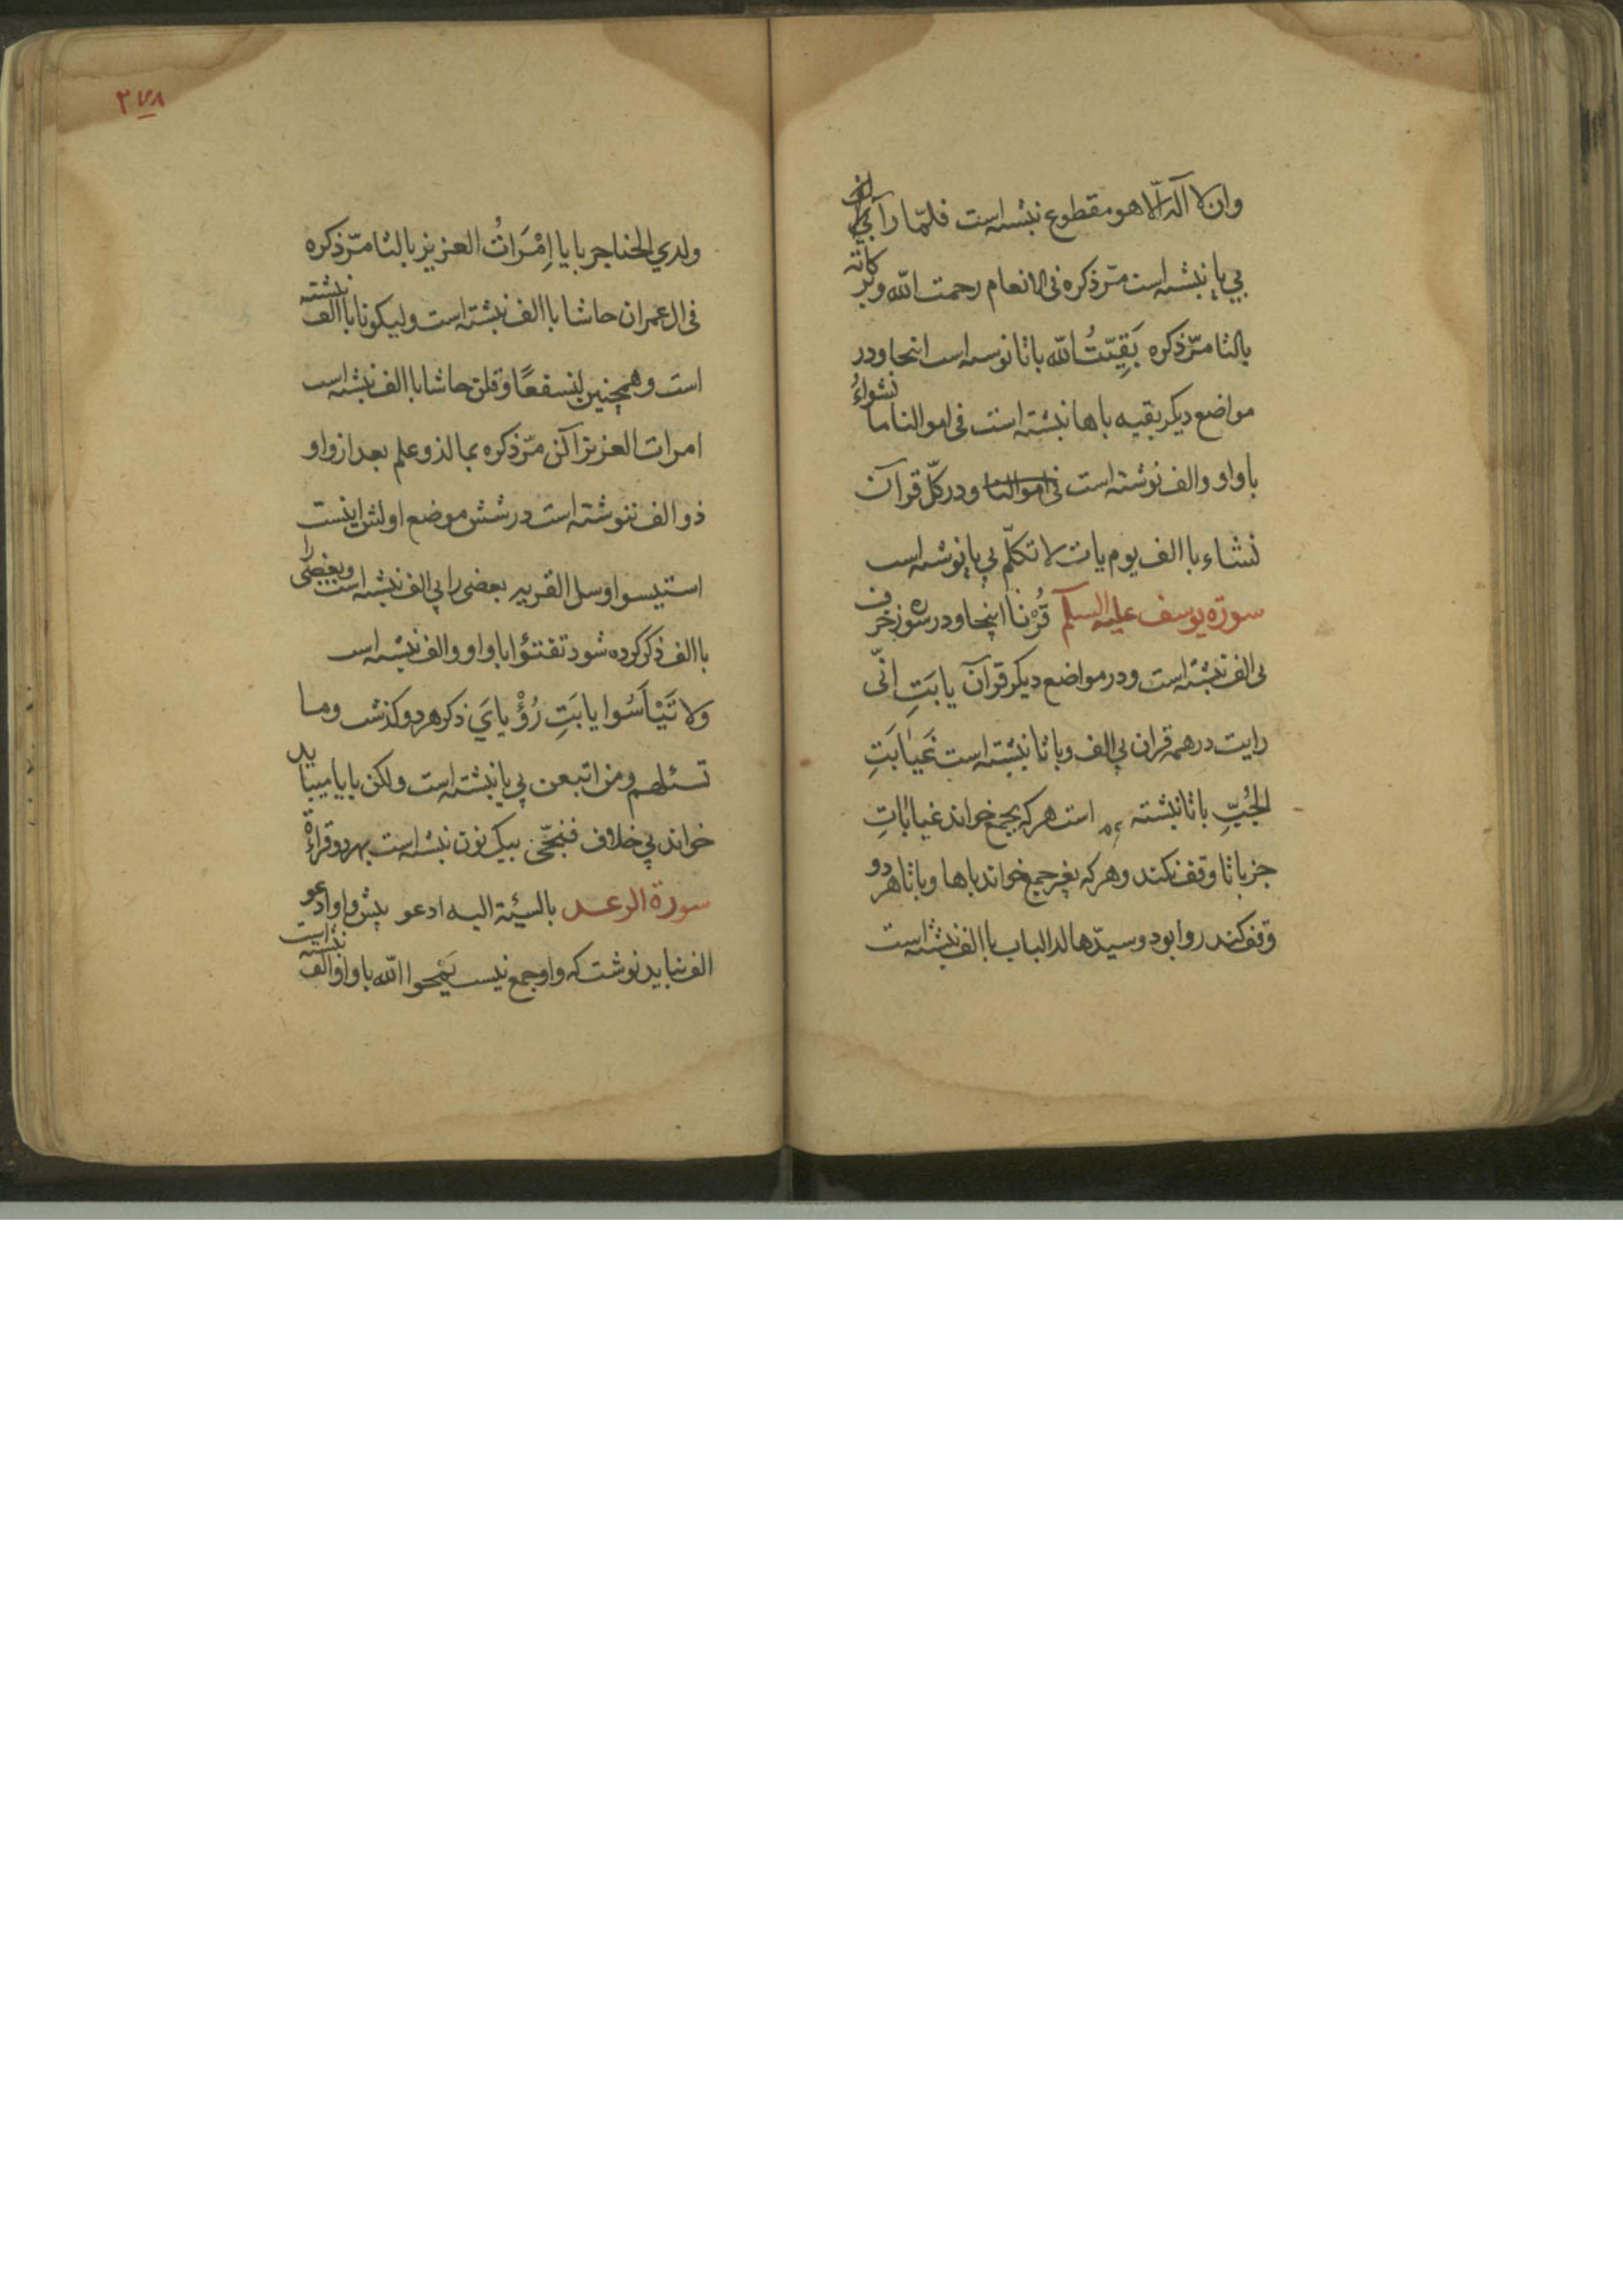 وان لا آله الّا هو مقطوع نبشته است فلمّا رآ
بي يا نبشته است مرّ ذكره فى الانعام رحمت الله وبركاته
بالتا مرّ ذكره بَقِيّتُ الله باتا نوسته است اينجا ودر
مواضع ديكر بقيه باها نبشته است فى اموالنا ما نشواءُ
با واو والف نوشته است فى اموالنا ودر كلّ قرآن
نشاء با الف يوم يات لا تكلّم بي يا نوشته است
سورة يوسف عليه السلم قُرْنا اينجا ودر سوره زخرف
بى الف نبشته است ودر مواضع ديكر قرآن يا بَتِ انّى
رايت در همه قران بي الف وبا تا نبشته است غَيٰابَتِ
الجُبِّ با تا نبشته است هر كه بجمع خواند غياباتِ
جز باتا وقف نكند وهر كه بغير جمع خواند باها وباتا هر دو
وقف كند روا بود وسيّدها لدا الباب با الف نبشته است
٢٧٨
ولدي الحناجر بايا اِمْرَاتُ العزيز بالتا مرّ ذكره
فى ال عمران حاشا با الف نبشته است وليكونا با الف نبشته
است وهمچنين لنسفعًا وقلن حاشا با الف نبشته است
امرات العزيز الن مرّ ذكره بما لذو علم بعد از واو
ذو الف ننوشته است در شش موضع اولش اينست
استيسوا وسل القريه بعضى را بي الف نبشته است وبعضى را
با الف ذكر كرده شود تفتؤا با واو والف نبشته است
ولا تَيْاَسُوا يا بَتِ رُؤْيايَ ذكر هر دو كذشت وما
تسئلهم ومن اتبعن بي يا نبشته است ولكن بايا ميبايد
خواند بي خلاف فنجّى بيك نون نبشته است بهر دو قراءة
سورة الرعد بالسيئة اليه ادعو پيش واو ادعو
الف نبايد نوشت كه واو جمع نيست يَمْحوا الله با واو والف نبشته است